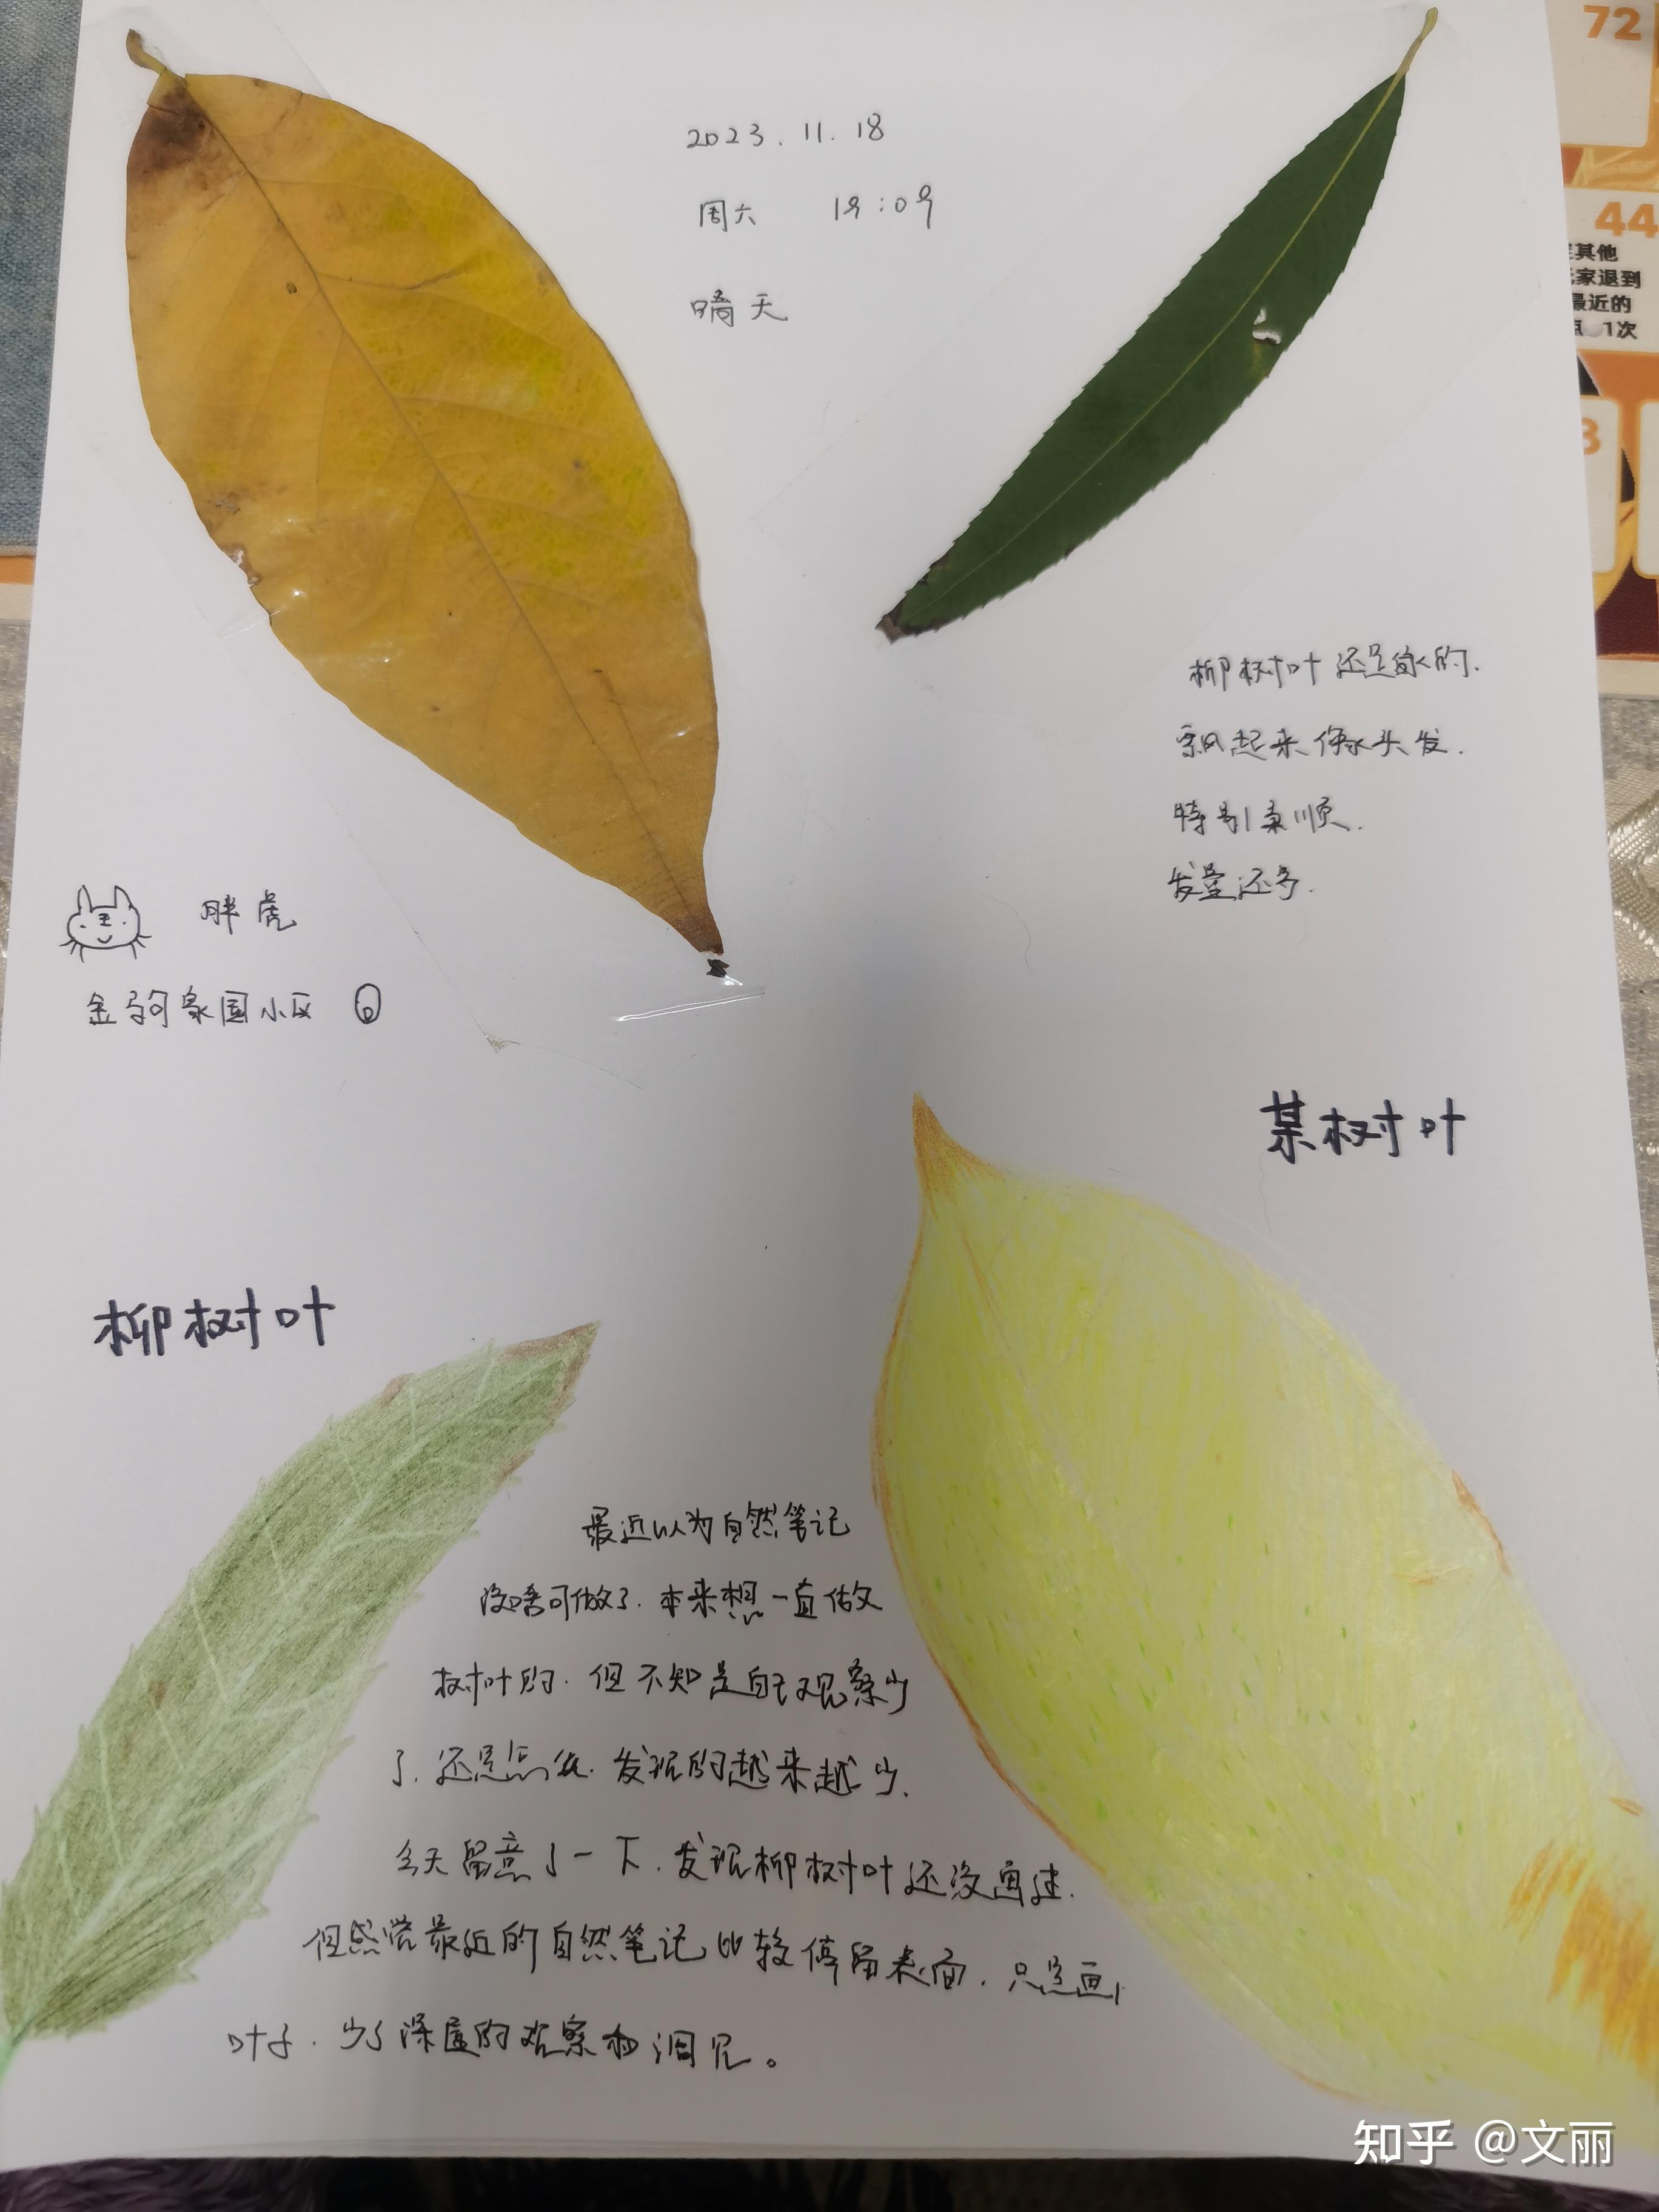 2023.11.18
周六 19:09
晴天
72
44
其他
家退到
最近的
1次
柳树叶还是绿的.
飘起来像头发.
特别柔顺.
发量还多.
王
胖虎
金驹家园小区
某树叶
柳树叶
最近以为自然笔记
没啥可做了.本来想一直做
树叶的.但不知是自己观察少
了.还是怎么.发现的越来越少.
今天留意了一下.发现柳树叶还没画过.
但感觉最近的自然笔记比较停留表面.只是画
叶子.少了深度的观察和洞见。
知乎 @文丽